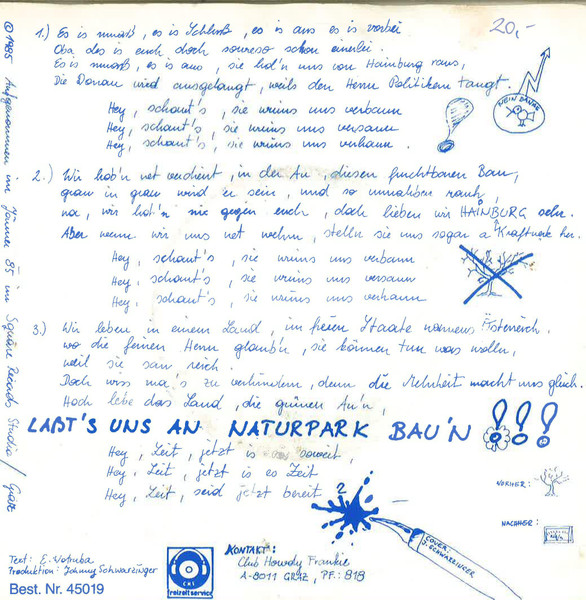 20,-
1.) Es is murxt, es is Schluß, es is aus es is vorbei
Oba des is euch doch sowieso schon einerlei.
Es is murxt, es is aus, sie hol'n uns von Hainburg raus,
Die Donau wird ausgelaugt, weils den Herrn Politikern taugt.
Hey, schaut's, sie wruns uns verbaun
Hey, schaut's, sie wruns uns versaun
Hey, schaut's, sie wruns uns verhaun.
NEIN DANKE
2.) Wir hob'n net verdient, in der Au, diesen furchtbaren Bau,
grau in grau wird er sein, und so unnahbar rauh,
na, wir hot'n nix gegen euch, doch lieben wir HAINBURG sehr.
Aber wenn wir uns net wehrn, stelln sie uns sogar a Kraftwerk her.
Hey, schaut's, sie wruns uns verbaun
Hey, schaut's, sie wruns uns versaun
Hey, schaut's, sie wruns uns verhaun
3.) Wir leben in einem Land, im freien Staate namens Österreich.
wo die feinen Herrn glaub'n, sie können tun was wolln,
weil sie san reich.
Doch wiss ma's zu verhindern, denn die Mehrheit macht uns gleich.
Hoch lebe das Land, die grünen Au'n,
LAẞT'S UNS AN NATURPARK BAU'N !!!
Hey, Leit, jetzt is es soweit,
Hey, Leit, jetzt is es Zeit
Hey, Leit, seid jetzt bereit
VORHER:
NACHHER:
COVER:
J. SCHWARZINGER
Text: E. Votruba
Produktion: Johnny Schwarzinger
Best. Nr. 45019
freizeitservice
KONTAKT:
Club Howdy Frankie
A-8011 GRAZ, PF.: 818
℗ 1985 Aufgenommen im Jänner 85 im Square Records Studio / Graz